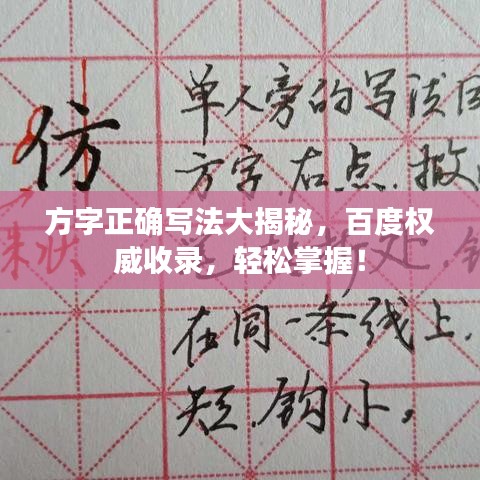 仿
单人旁的写法回
方字.右点.撇
方字正确写法大揭秘，百度权
威收录，轻松掌握！
在同一条线上.
短.钩小。